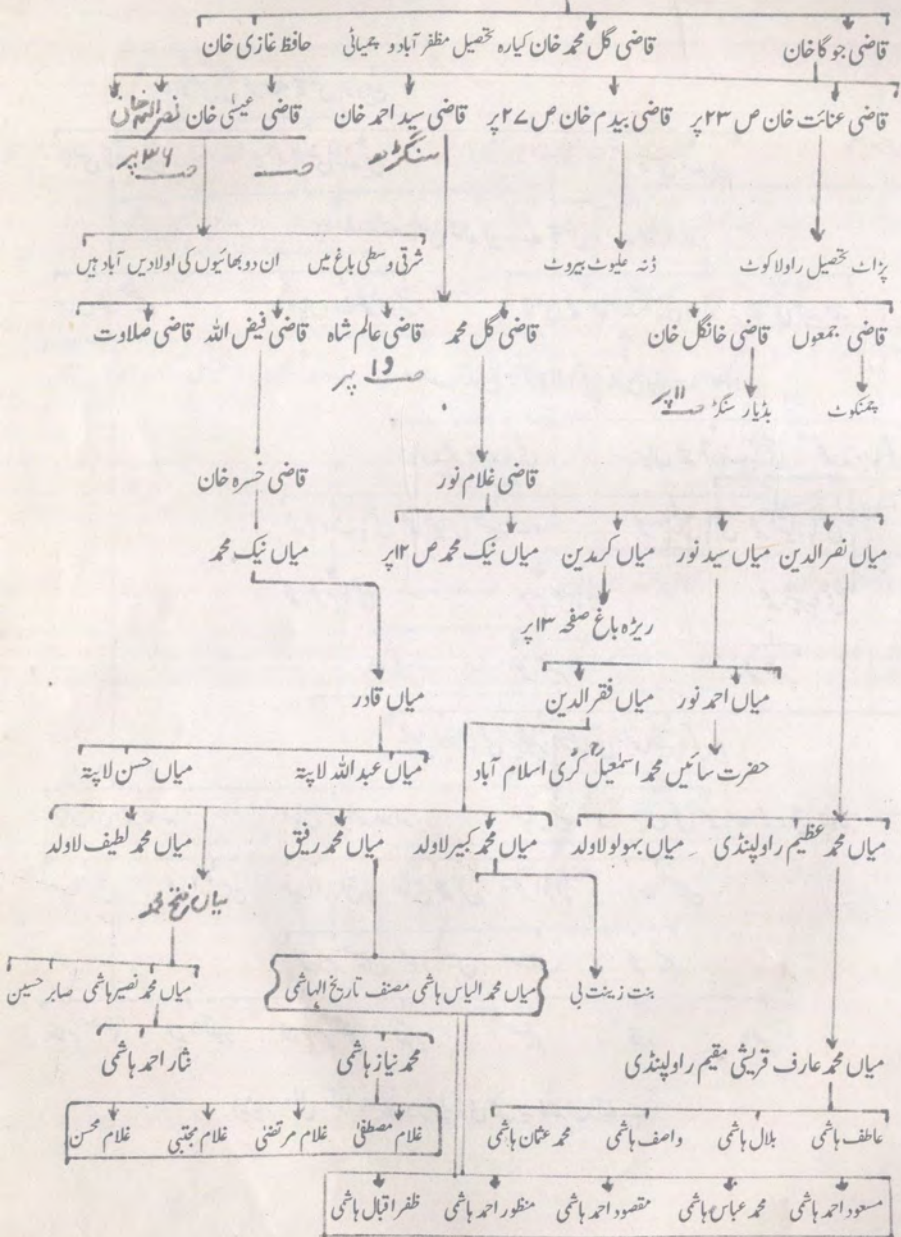 قاضی جوگا خان قاضی گل محمد خان کیارہ تحصیل مظفر آباد و چمیاٹی حافظ غازی خان
قاضی عنائت خان ص ۲۳ پر قاضی بیدم خان ص ۲۷ پر قاضی سید احمد خان قاضی عیسیٰ خان نصراللہ خان
سنگڑھ صـ صـ ۳۶ پر
پڑاٹ تحصیل راولا کوٹ ڈنہ علیوٹ بیروٹ شرقی وسطی باغ میں ان دو بھائیوں کی اولادیں آباد ہیں
قاضی جمعوں قاضی خانگل خان قاضی گل محمد قاضی عالم شاہ قاضی فیض اللہ قاضی صلاوت
صـ ۱۹ پر
چمنکوٹ بڈیار سنگڑ صـ ۱۱ پر
قاضی غلام نور قاضی خسرہ خان
میاں نصر الدین میاں سید نور میاں کرمدین میاں نیک محمد ص ۱۲ پر میاں نیک محمد
ریڑہ باغ صفحہ ۱۳ پر
میاں احمد نور میاں فقر الدین میاں قادر
حضرت سائیں محمد اسمٰعیلؒ گرمی اسلام آباد میاں عبداللہ لاپتہ میاں حسن لاپتہ
میاں محمد عظیم راولپنڈی میاں بہولو لاولد میاں محمد کبیر لاولد میاں محمد رفیق میاں محمد لطیف لاولد
میاں فتح محمد
بنت زینت بی میاں محمد الیاس ہاشمی مصنف تاریخ الہاشمی میاں محمد نصیر ہاشمی صابر حسین
میاں محمد عارف قریشی مقیم راولپنڈی محمد نیاز ہاشمی نثار احمد ہاشمی
عاطف ہاشمی بلال ہاشمی واصف ہاشمی محمد عثمان ہاشمی غلام مصطفیٰ غلام مرتضیٰ غلام مجتبیٰ غلام محسن
مسعود احمد ہاشمی محمد عباس ہاشمی مقصود احمد ہاشمی منظور احمد ہاشمی ظفر اقبال ہاشمی